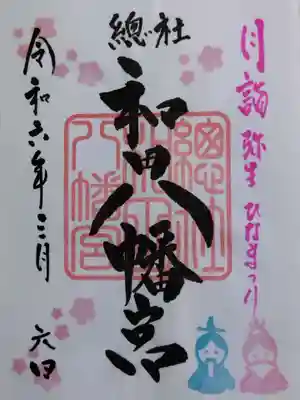 月詣 弥生 ひなまつり
總社
和田八幡宮
總社
和田
八幡宮
令和六年三月 六日